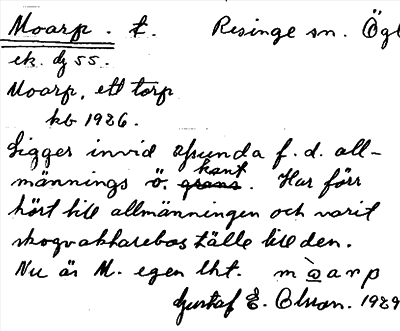 Moarp. t. Resinge sn. Ögl
ek. bl 55.
Moarp, ett torp
kb 1926.
Ligger invid Risinge f. d. all-
männings ö. kant. Har förr
hört till allmänningen och varit
skogvaktareboställe till den.
Nu är M. egen lht. màarp
Gustaf E. Olsson. 1929